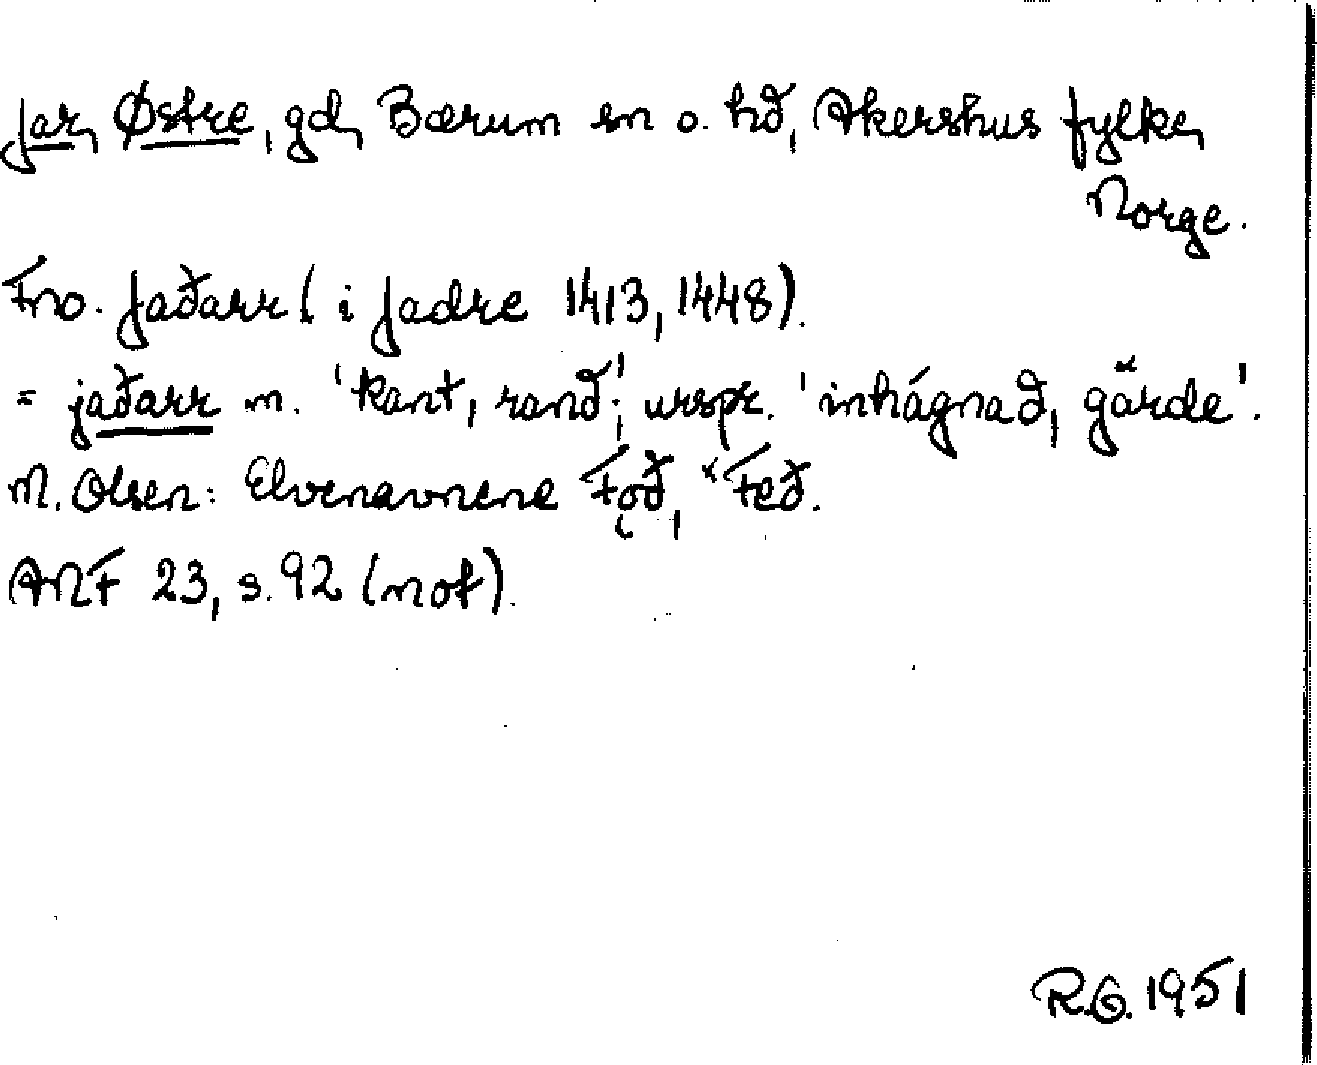 Jar, Østre, gd, Bærum sn o. hd, Akershus fylke,
Norge.
Fno. Jaðarr (i Jadre 1413, 1448).
= jaðarr m. 'kant, rand'; urspr. 'inhägnad, gärde'.
M. Olsen: Elvenavnene Fǫð, *Feð.
ANF 23, s. 92 (not).
R.G. 1951